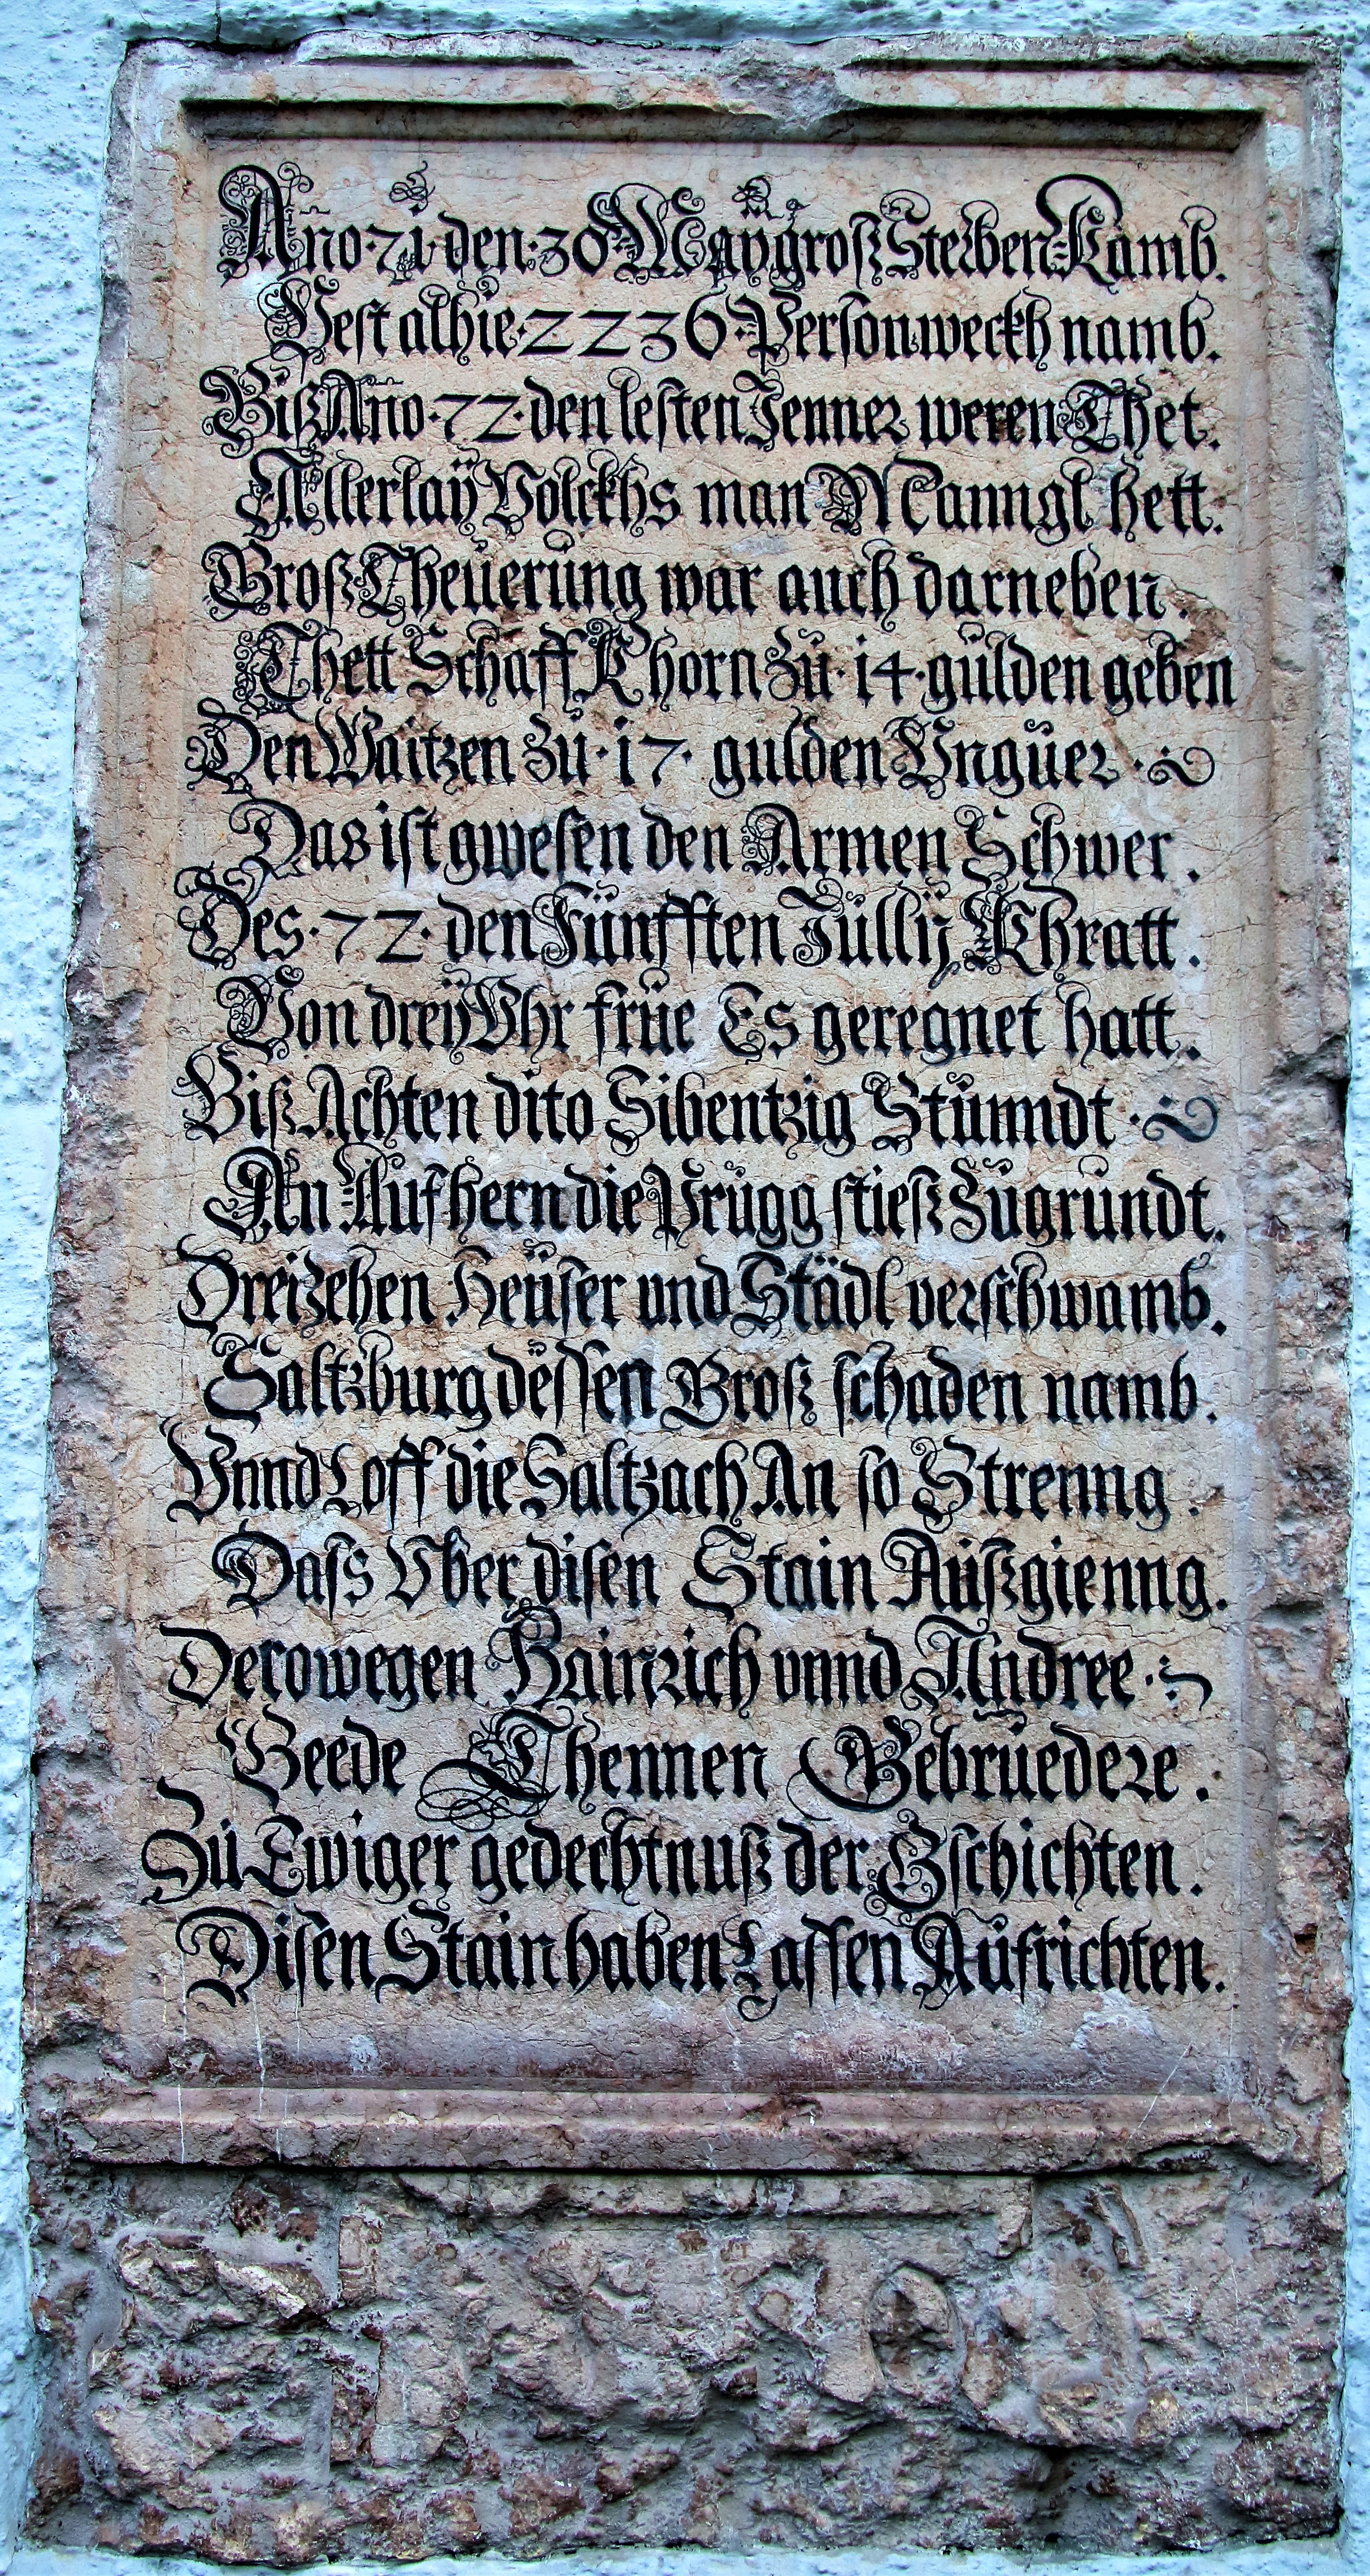 Año·71·den·30 May groß Sterben Kamb.
Pest alhie·2236·Person weckh namb.
Biß Año·72·den lesten Jenner weren Thet.
Allerlaÿ Volckhs man Manngl hett.
Groß Theuerung war auch darneben.
Thett Schäff Khorn zu·14·gulden geben
Den Waitzen zu·17·gulden Unguer·
Das ist gwesen den Armen Schwer.
Des·72·den Fünfften Jullÿ Khratt.
Von dreÿ Uhr früe Es geregnet hatt.
Biß Achten dito Sibentzig Stunndt·
An Aufhern die Prugg stieß Zugrundt.
Dreizehen Heüser und Städl verschwamb.
Saltzburg dessen Groß schaden namb.
Unnd Loff die Saltzach An so Strenng.
Dass Uber disen Stain Außgienng.
Derowegen Hainrich unnd Andree·
Beede Thennen Gebruedere.
Zu Ewiger gedechtnuß der Gschichten.
Disen Stain haben Lassen Aufrichten.